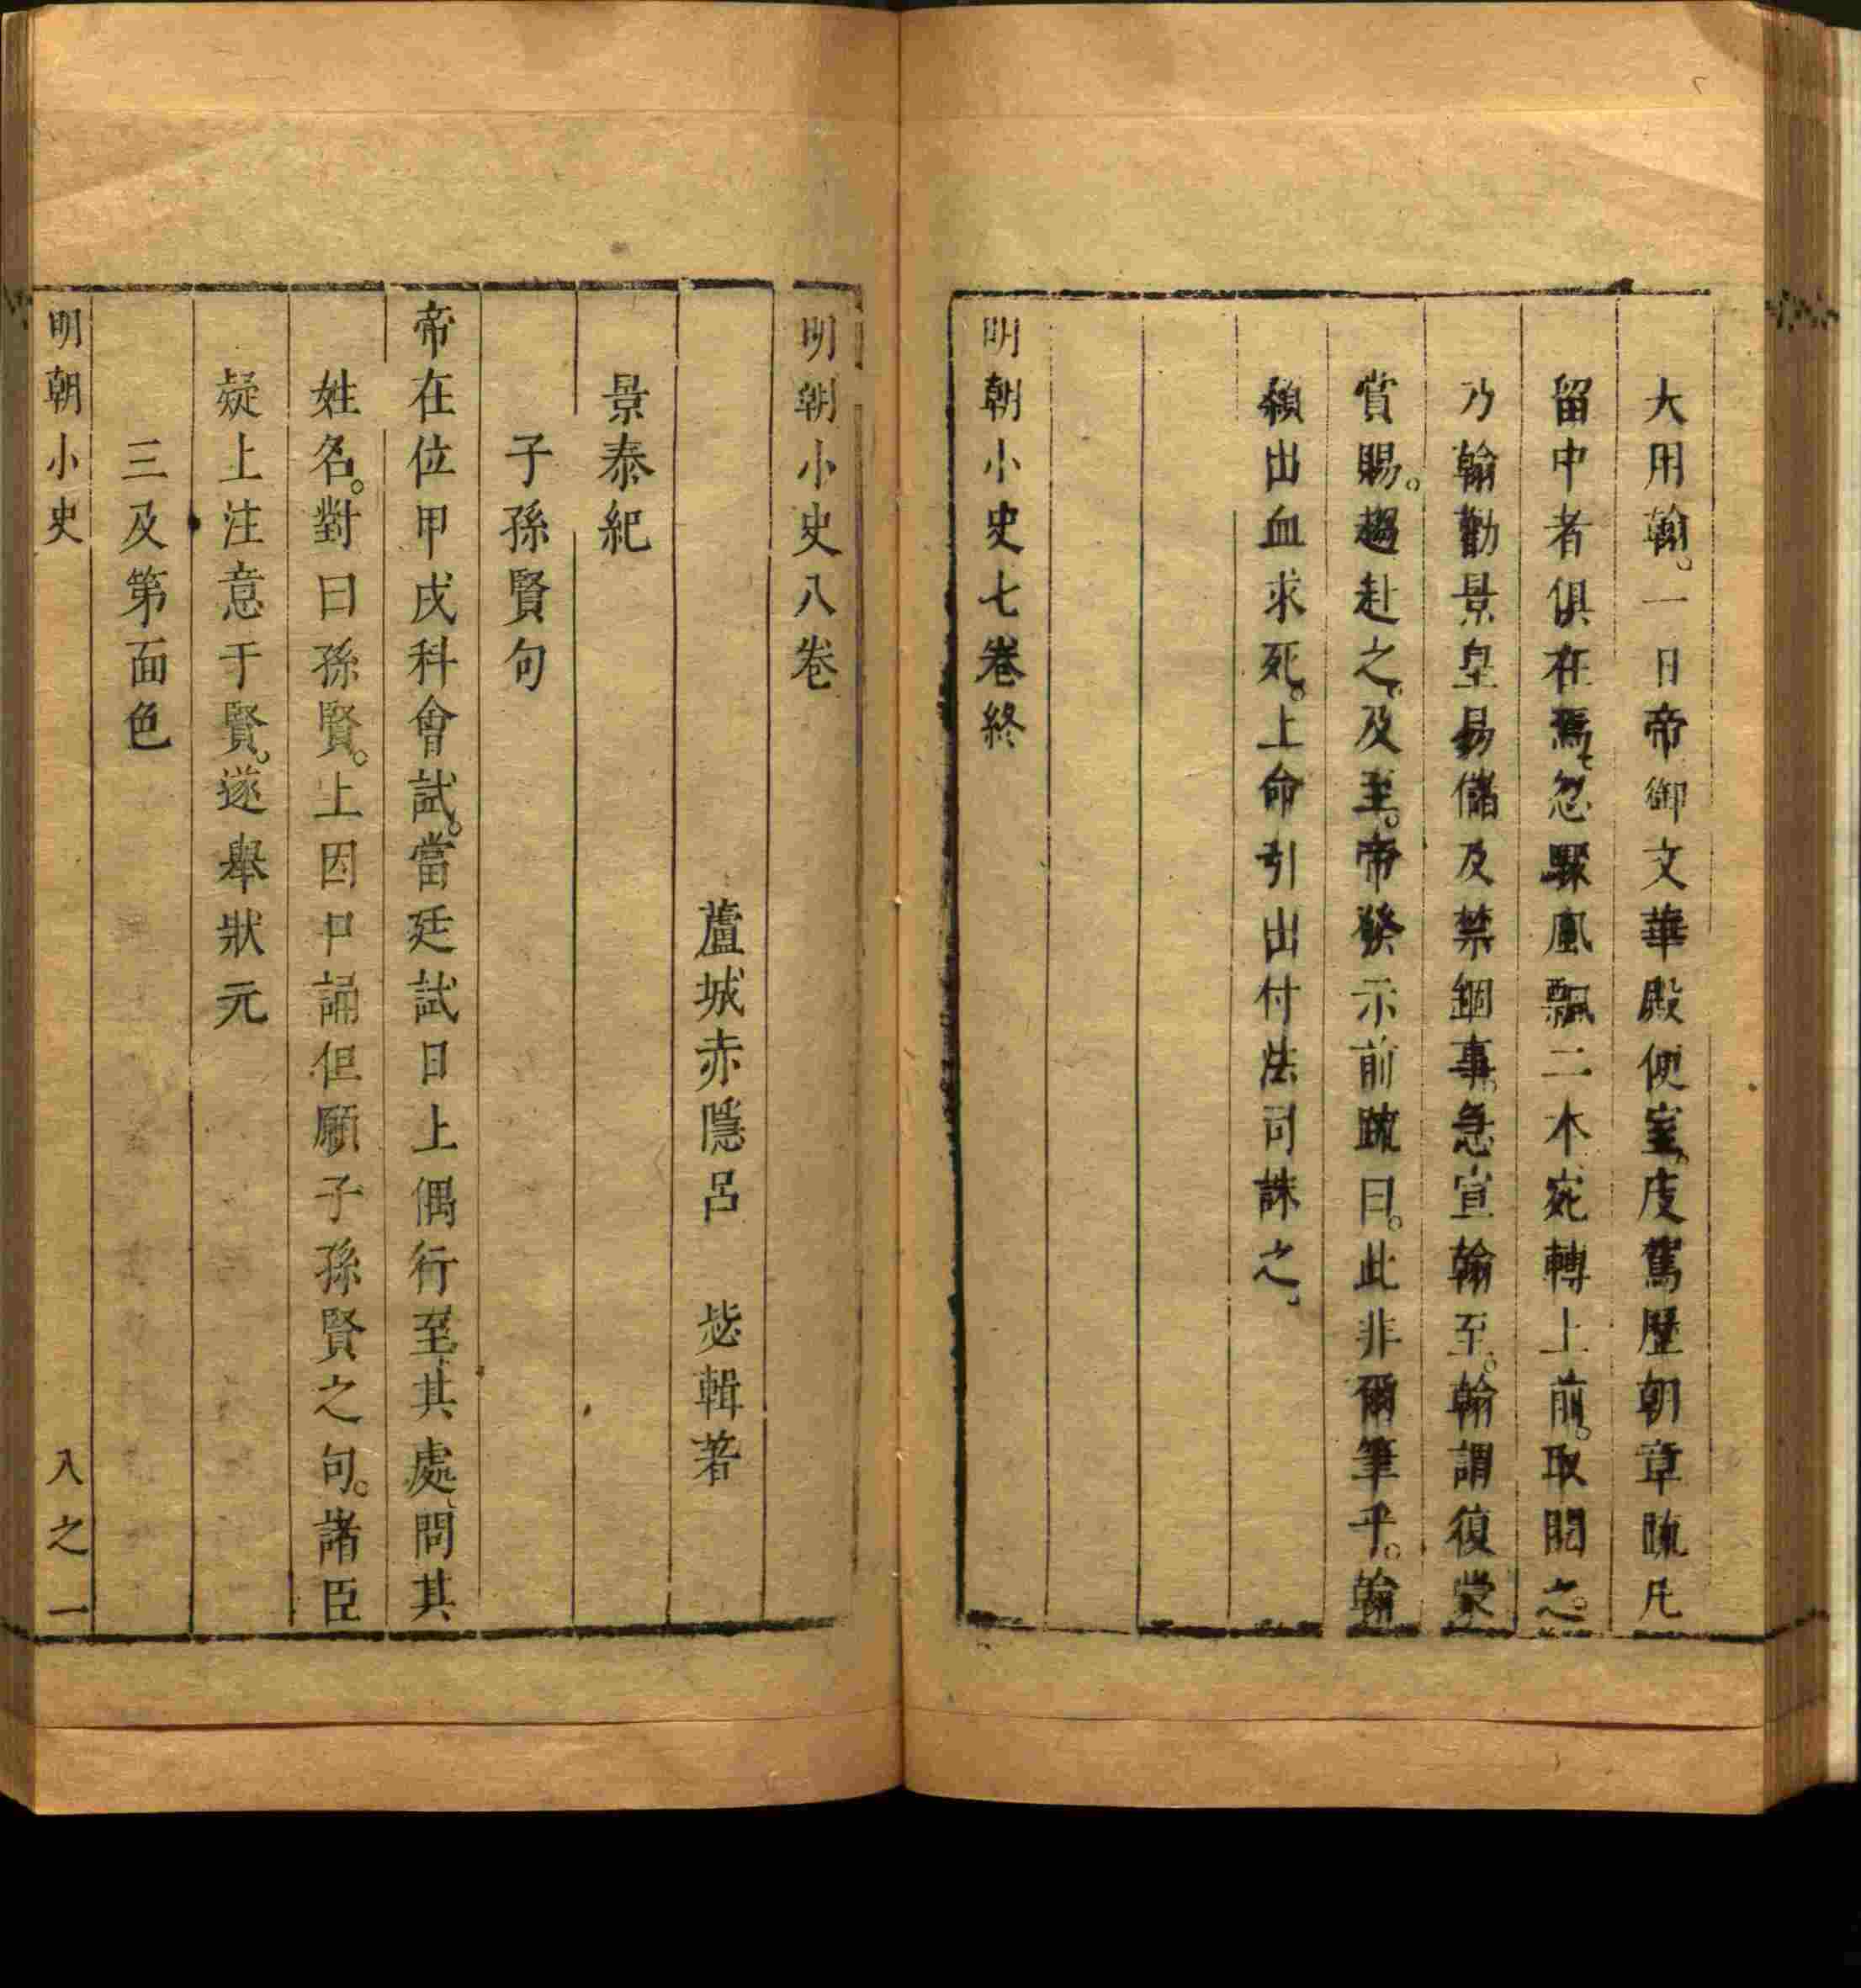 大用翰。一日帝御文華殿便室。庋舊歷朝章疏凡
留中者俱在焉。忽驟風飄二木宛轉上前。取閱之。
乃翰勸景皇易儲及禁錮事。急宣翰至。翰謂復蒙
賞賜。趨赴之。及至。帝發示前疏曰。此非爾筆乎。翰
顙出血求死。上命引出付法司誅之。
明朝小史七卷終
明朝小史八卷
蘆城赤隱呂　毖輯著
景泰紀
子孫賢句
帝在位甲戌科會試。當廷試日上偶行至其處。問其
姓名。對曰孫賢。上因口誦但願子孫賢之句。諸臣
疑上注意于賢。遂舉狀元
三及第面色
明朝小史　八之一